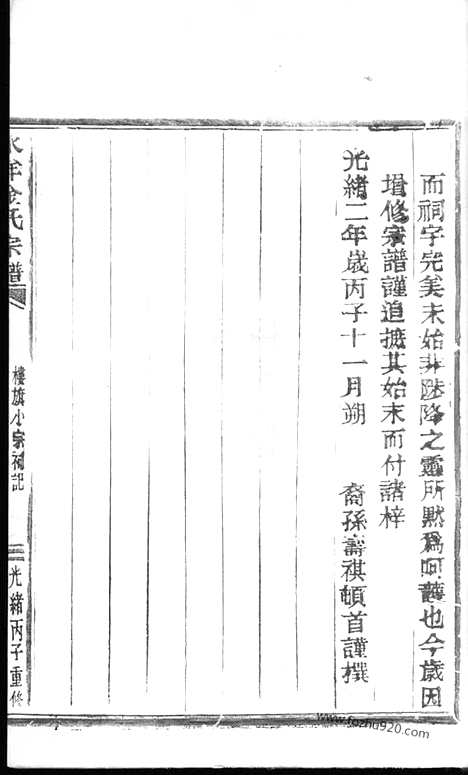 而祠宇完美未始非陟降之靈所默爲呵護也今歲因
增修宗譜謹追摭其始末而付諸梓
光緒二年歲丙子十一月朔 裔孫壽祺頓首謹撰
氏宗譜
樓旗小宗祠記
二
光緒丙子重修
www.fozhu920.com